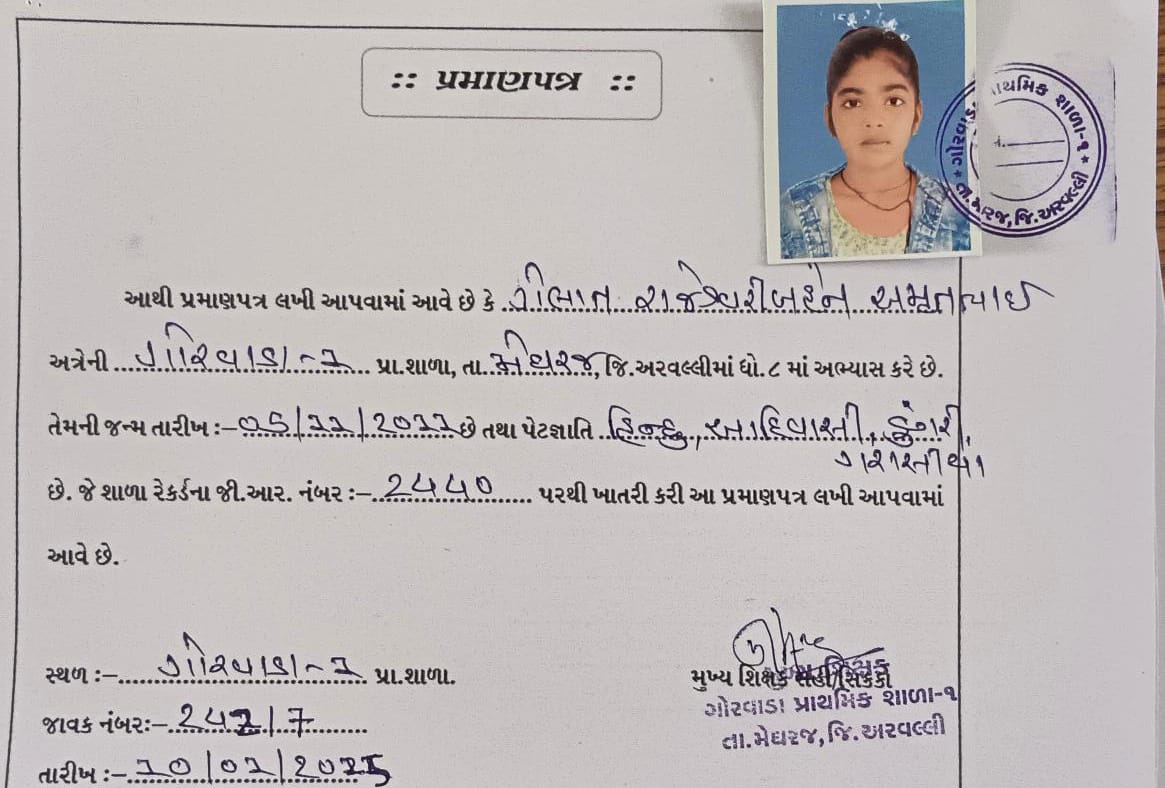 :: પ્રમાણપત્ર ::
ગોરવાડા પ્રાથમિક શાળા-૧
તા.મેઘરજ,જિ.અરવલ્લી
આથી પ્રમાણપત્ર લખી આપવામાં આવે છે કે રાજેશ્વરીબહેન અમૃતભાઈ
અત્રેની ગોરવાડા-૧ પ્રા.શાળા, તા. મેઘરજ, જિ.અરવલ્લીમાં ધો.૮ માં અભ્યાસ કરે છે.
તેમની જન્મ તારીખ :- છે તથા પેટાજ્ઞાતિ હિન્દુ, આદિવાસી, ડુંગરી,
ગરાસીયા
છે. જે શાળા રેકર્ડના જી.આર. નંબર :- ૨૪૪૦ પરથી ખાતરી કરી આ પ્રમાણપત્ર લખી આપવામાં
આવે છે.
સ્થળ :- ગોરવાડા-૧ પ્રા.શાળા.
મુખ્ય શિક્ષક સહી/સિક્કો
જાવક નંબર:-
ગોરવાડા પ્રાથમિક શાળા-૧
તા.મેઘરજ,જિ.અરવલ્લી
તારીખ :- ૧૦/૦૧/૨૦૨૫